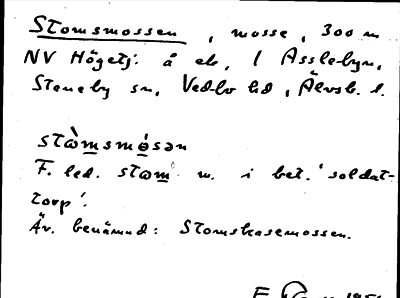 Stomsmossen, mosse, 300 m
NV Högetj. å ek, l Assleby n,
Steneby sn, Vedbo hd, Älvsb. l.
stòmsmósən
F. led. stom m. i bet. 'soldat-
torp'.
Äv. benämnd: Stomskasemossen.